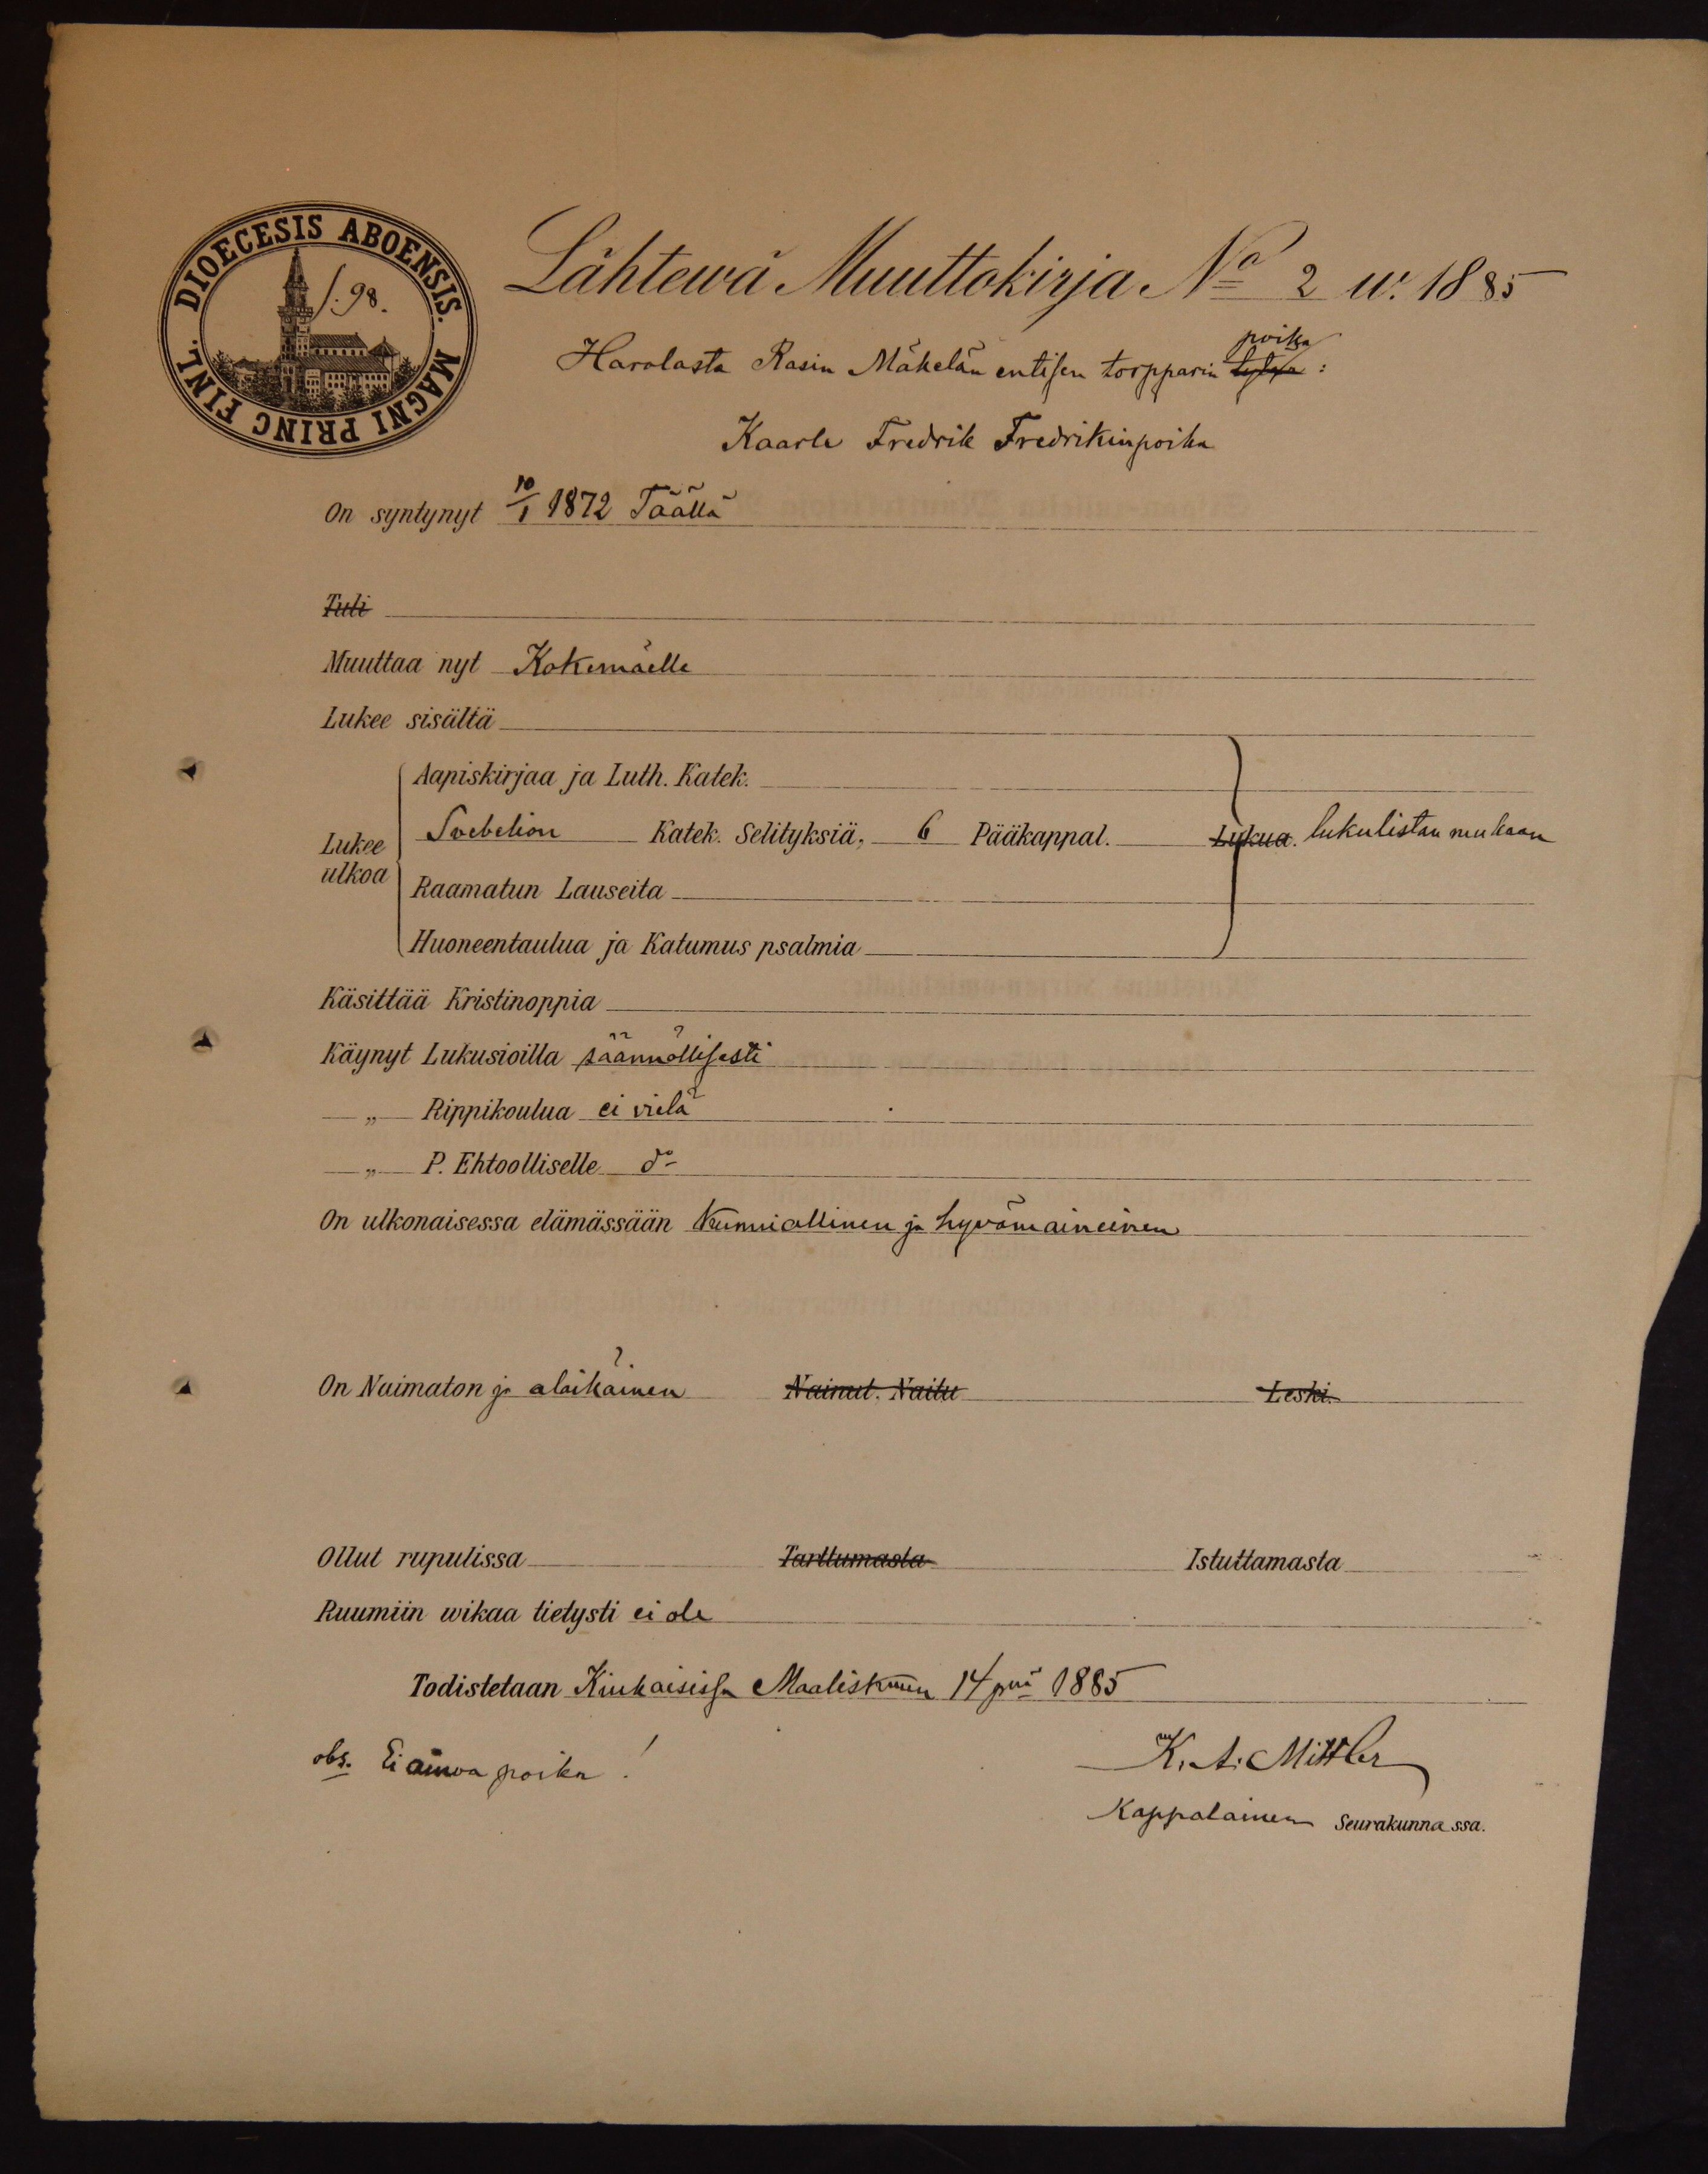 DIOECESIS ABOENSIS. MAGNI PRINC FINL.
S. 98.
Lähtewä Muuttokirja No 2 w. 1885
poika
Harolasta Rasin Mäkelän entisen torpparin tytär :
Kaarle Fredrik Fredrikinpoika
On syntynyt 10/1 1872 Täällä
Tuli
Muuttaa nyt Kokemäelle
Lukee sisältä
Aapiskirjaa ja Luth. Katek.
Lukee ulkoa
Svebelion Katek. Selityksiä, 6 Pääkappal. Lukua. lukulistan mukaan
Raamatun Lauseita
Huoneentaulua ja Katumus psalmia
Käsittää Kristinoppia
Käynyt Lukusioilla säännöllisesti
—„— Rippikoulua ei vielä
—„— P. Ehtoolliselle do
On ulkonaisessa elämässään kunniallinen ja hyvämaineinen
On Naimaton ja alaikäinen Nainut. Naitu Leski.
Ollut rupulissa Tarttumasta Istuttamasta
Ruumiin wikaa tietysti ei ole
Todistetaan Kiukaisissa Maaliskuun 14 pnä 1885
obs. Ei ainoa poika!
K. A. Mittler
Kappalainen Seurakunnassa.